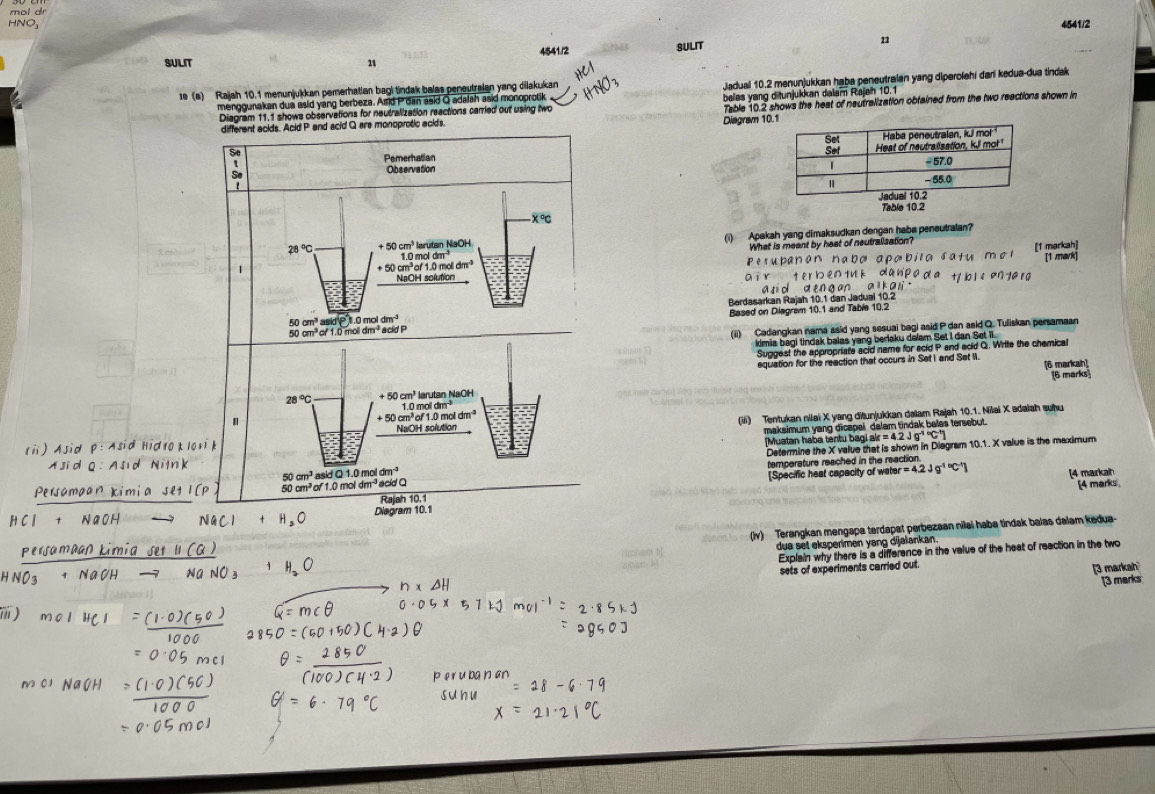 mol dr
HNO₃
SULIT
21
4541/2
10 (a) Rajah 10.1 menunjukkan pemerhatian bagi tindak balas peneutralan yang dilakukan
menggunakan dua asid yang berbeza. Asid P dan asid Q adalah asid monoprotik
Diagram 11.1 shows observations for neutralization reactions carried out using two
different acids. Acid P and acid Q are monoprotic acids.
HCl
HNO₃
Se
t
Se
t
Pemerhatian
Observation
I
28 °C
+ 50 cm³ larutan NaOH
1.0 mol dm⁻³
+ 50 cm³ of 1.0 mol dm⁻³
NaOH solution
X°C
50 cm³ asid P 1.0 mol dm⁻³
50 cm³ of 1.0 mol dm⁻³ acid P
II
28 °C
+ 50 cm³ larutan NaOH
1.0 mol dm⁻³
+ 50 cm³ of 1.0 mol dm⁻³
NaOH solution
50 cm³ asid Q 1.0 mol dm⁻³
50 cm³ of 1.0 mol dm⁻³ acid Q
Rajah 10.1
Diagram 10.1
(ii) Asid P : Asid Hidroklorik
Asid Q : Asid Nitrik
Persamaan kimia set I (P)
HCl + NaOH → NaCl + H₂O
persamaan kimia set II (Q)
HNO₃ + NaOH → NaNO₃ + H₂O
iii) mol HCl = (1.0)(50)
1000
= 0.05 mol
mol NaOH = (1.0)(50)
1000
= 0.05 mol
Q = mcθ
2850 = (50+50)(4.2)θ
θ = 2850
(100)(4.2)
θ = 6.79 °C
n x ΔH
0.05 x 57 kJ mol⁻¹ = 2.85 kJ
= 2850 J
perubahan
suhu = 28 - 6.79
x = 21.21 °C
SULIT
22
4541/2
Jadual 10.2 menunjukkan haba peneutralan yang diperolehi dari kedua-dua tindak
balas yang ditunjukkan dalam Rajah 10.1
Table 10.2 shows the heat of neutralization obtained from the two reactions shown in
Diagram 10.1
Set
Set
Haba peneutralan, kJ mol⁻¹
Heat of neutralisation, kJ mol⁻¹
I
- 57.0
II
- 55.0
Jadual 10.2
Table 10.2
(i) Apakah yang dimaksudkan dengan haba peneutralan?
What is meant by heat of neutralisation?
[1 markah]
[1 mark]
Perubahan haba apabila satu mol
air terbentuk daripada t/b antara
asid dengan alkali.
Berdasarkan Rajah 10.1 dan Jadual 10.2
Based on Diagram 10.1 and Table 10.2
(ii) Cadangkan nama asid yang sesuai bagi asid P dan asid Q. Tuliskan persamaan
kimia bagi tindak balas yang berlaku dalam Set I dan Set II.
Suggest the appropriate acid name for acid P and acid Q. Write the chemical
equation for the reaction that occurs in Set I and Set II.
[6 markah]
[6 marks]
(iii) Tentukan nilai X yang ditunjukkan dalam Rajah 10.1. Nilai X adalah suhu
maksimum yang dicapai dalam tindak balas tersebut.
[Muatan haba tentu bagi air = 4.2 J g⁻¹ °C⁻¹]
Determine the X value that is shown in Diagram 10.1. X value is the maximum
temperature reached in the reaction.
[Specific heat capacity of water = 4.2 J g⁻¹ °C⁻¹]
[4 markah
[4 marks
(iv) Terangkan mengapa terdapat perbezaan nilai haba tindak balas dalam kedua-
dua set eksperimen yang dijalankan.
Explain why there is a difference in the value of the heat of reaction in the two
sets of experiments carried out.
[3 markah
[3 marks